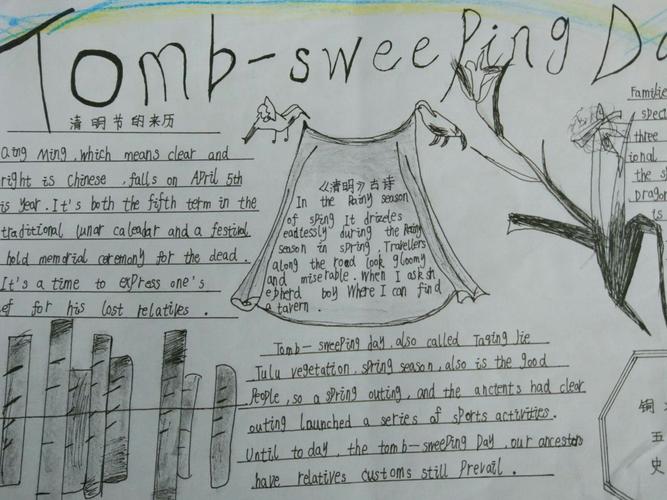 Tomb-sweeping Da
清明节的来历
Qing Ming, which means clear and
right is Chinese, falls on April 5th
is year. It's both the fifth term in the
traditional lunar caleadar and a festival
hold memorial ceremony for the dead.
It's a time to express one's
ef for his lost relatives.
《清明》古诗
In the Rainy season
of sping It drizeles
eadtessly during the Rainy
season in spring. Travellers
along the road look gloomy
and miserable. When I ask sh
epherd boy Where I can find
a tavern.
Familie
spect
three
ional
the s
Dragon
is
Tomb-sweeping day, also called Taqing Jie
Tulu vegetation, spring season, also is the good
People, so a spring outing, and the ancients had clear
outing launched a series of sports activities.
Until today, the tomb-sweeping Day, our ancestors
have relatives customs still Prevail.
铜
五
史